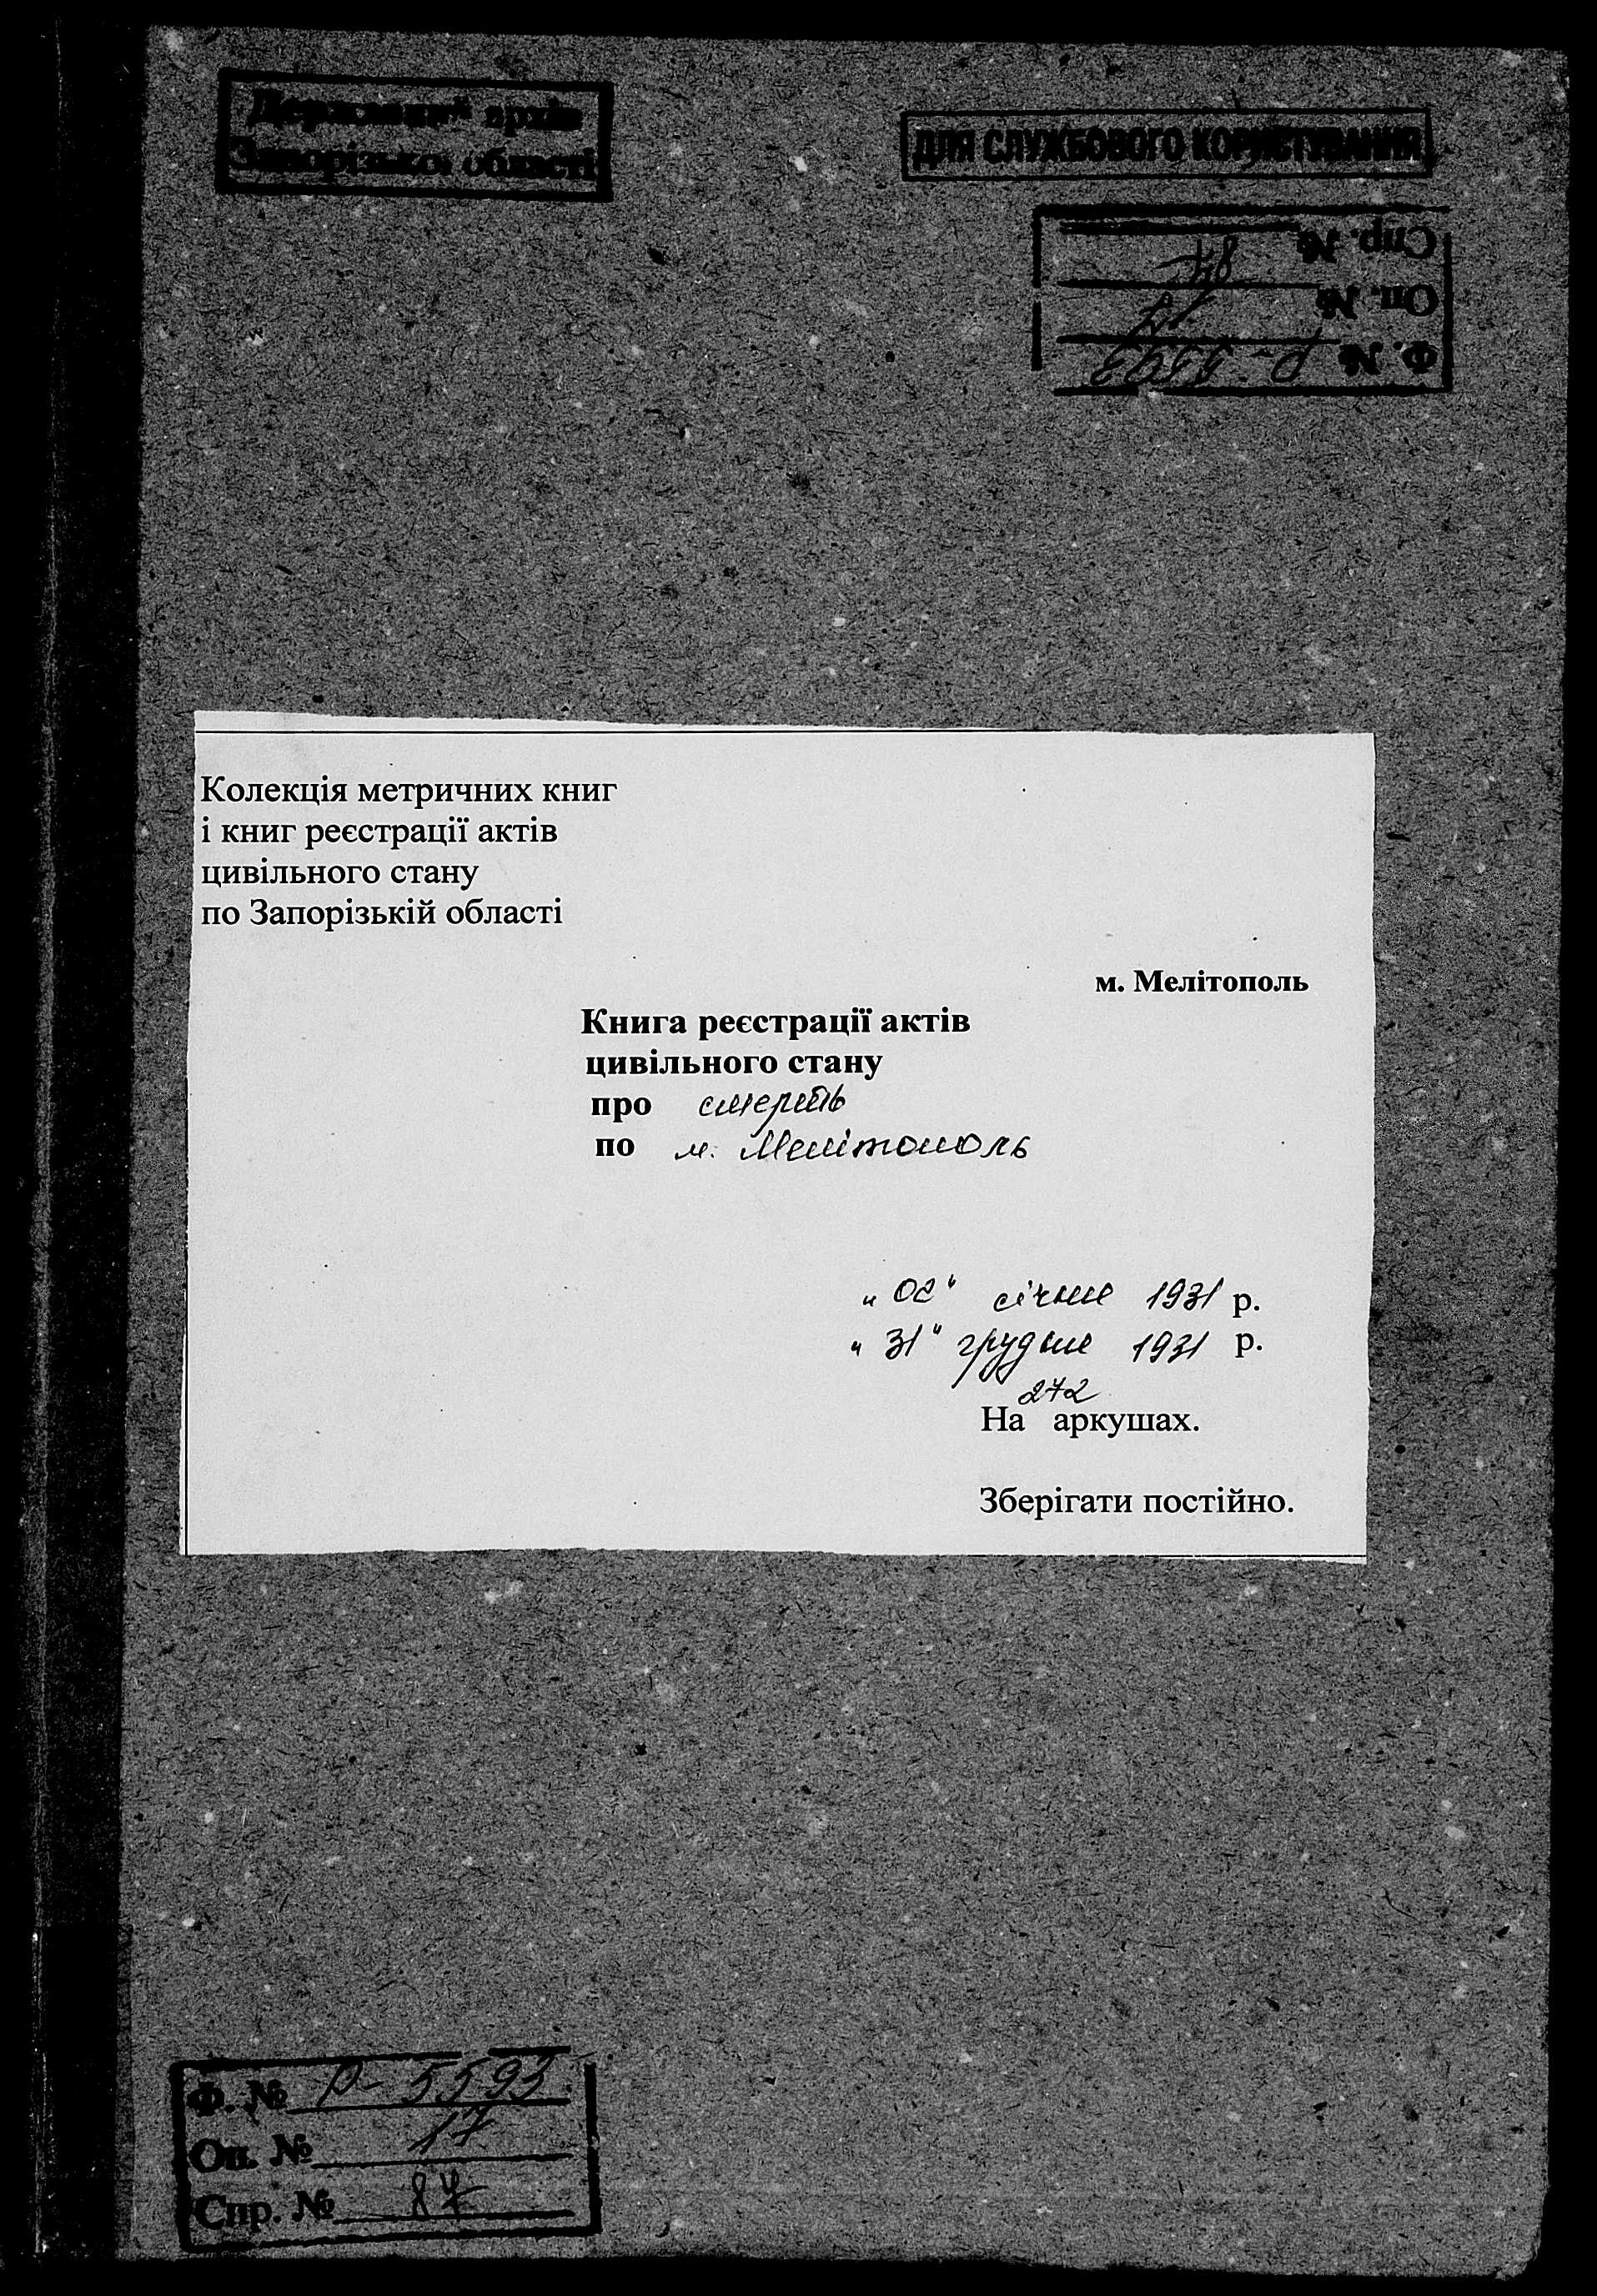 Державний архів
Запорізької області
ДЛЯ СЛУЖБОВОГО КОРИСТУВАННЯ
Спр. № 87
Оп. № 17
Ф. № Р-5593
Колекція метричних книг
і книг реєстрації актів
цивільного стану
по Запорізькій області
м. Мелітополь
Книга реєстрації актів
цивільного стану
про смерть
по м. Мелітополь
„02" січня 1931 р.
„31" грудня 1931 р.
272
На аркушах.
Зберігати постійно.
Ф. № Р-5593
Оп. № 17
Спр. № 87